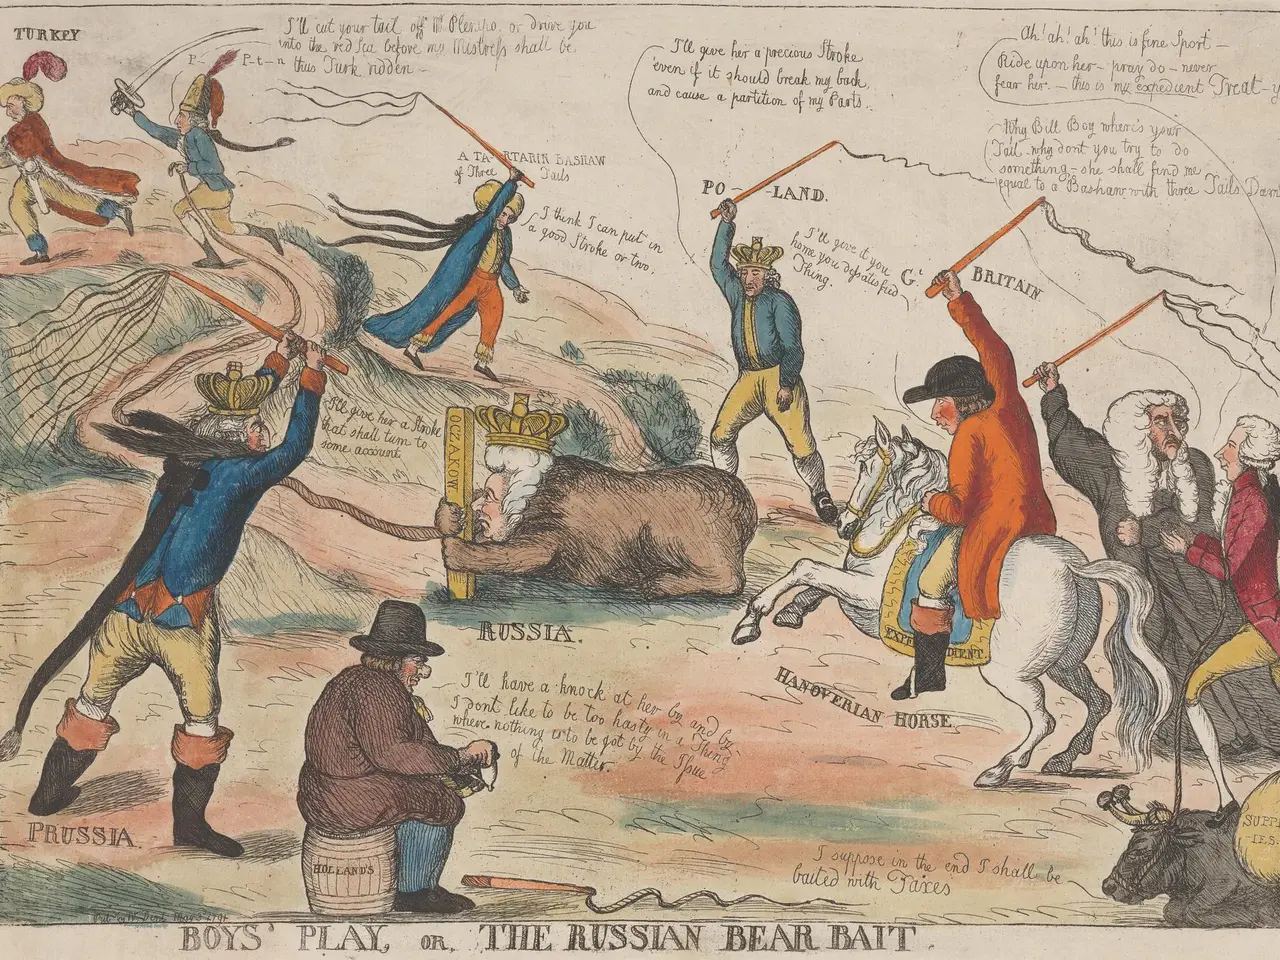 TURKEY
I'll cut your tail off Mr. Plenipo. or drive you
into the red Sea before my Mistress shall be
thus Turk ridden -
P- P-t-n
A TARTARIN BASHAW
of Three Tails
I think I can put in
a good Stroke or two.
I'll give her a precious Stroke
even if it should break my back
and cause a partition of my Parts.
PO- -LAND.
I'll give it you
home you dissatisfied
Thing.
Gt. BRITAIN
Ah! ah! ah! this is fine Sport -
Ride upon her - pray do - never
fear her. - this is my expedient Treat-y
Why Bill Boy where's your
Tail - why dont you try to do
something - she shall find me
equal to a Bashaw with three Tails Dam
I'll give her a Stroke
that shall turn to
some account
OCZAKOW.
RUSSIA.
I'll have a knock at her by and by
I dont like to be too hasty in a Thing
where nothing is to be got by the Issue
of the Matter.
EXPEDIENT.
HANOVERIAN HORSE.
PRUSSIA.
HOLLANDS
SUPP
-IES.
I suppose in the end I shall be
baited with Taxes
Pub. by W. Dent May 3 1791
BOYS' PLAY, OR, THE RUSSIAN BEAR BAIT.